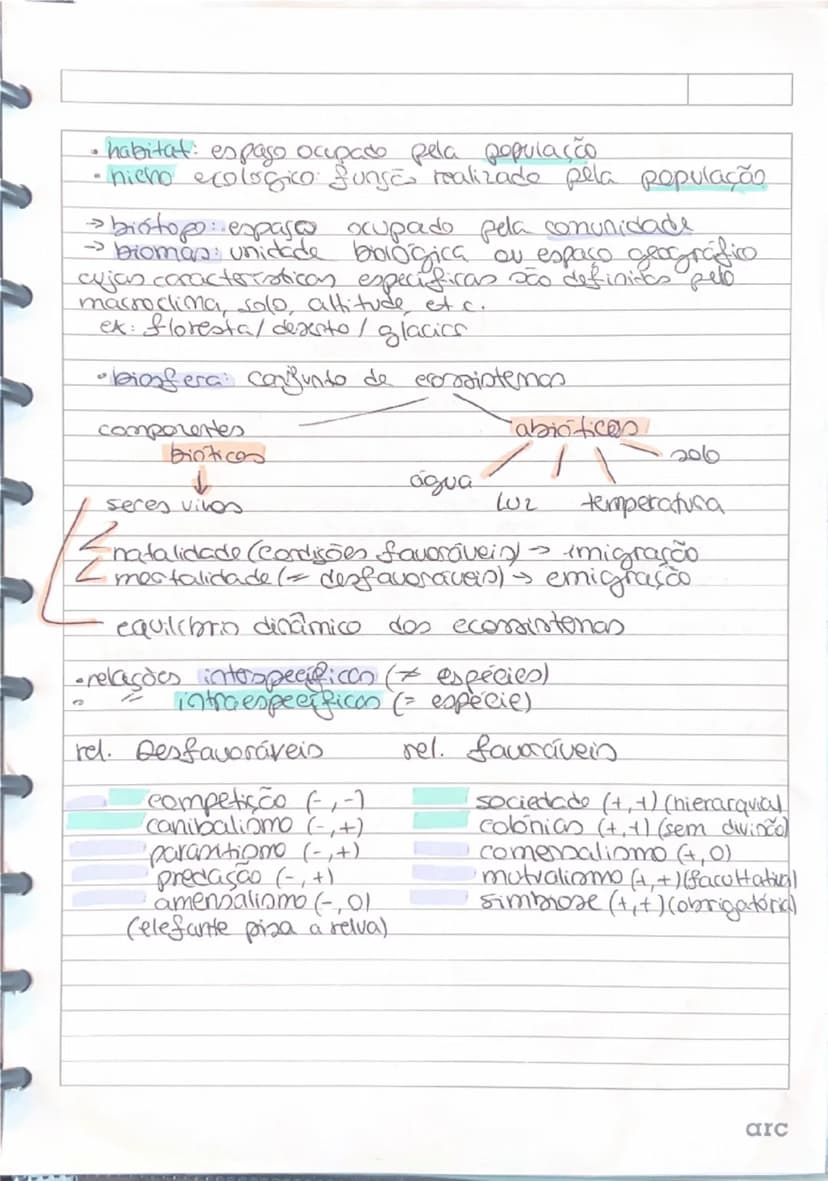 • habitat: espaço ocupado pela população
• nicho ecológico: função realizada pela população
→ biótopo: espaço ocupado pela comunidade
→ biomas: unidade biológica ou espaço geográfico
cujas características específicas são definidas pelo
macroclima, solo, altitude, etc.
ex: floresta/ deserto / glaciar
• biosfera: conjunto de ecossistemas
componentes abióticos
bióticos solo
água
seres vivos luz temperatura
natalidade (condições favoráveis) → imigração
mortalidade (= desfavoráveis) → emigração
equilíbrio dinâmico dos ecossistemas
• relações interespecíficas (≠ espécies)
• = intraespecíficas (= espécie)
rel. Desfavoráveis rel. favoráveis
competição (-,-) sociedade (+,+) (hierarquia)
canibalismo (-,+) colónias (+,+) (sem divisão)
parasitismo (-,+) comensalismo (+,0)
predação (-,+) mutualismo (+,+) (facultativa)
amensalismo (-,0) simbiose (+,+) (obrigatória)
(elefante pisa a relva)
arc